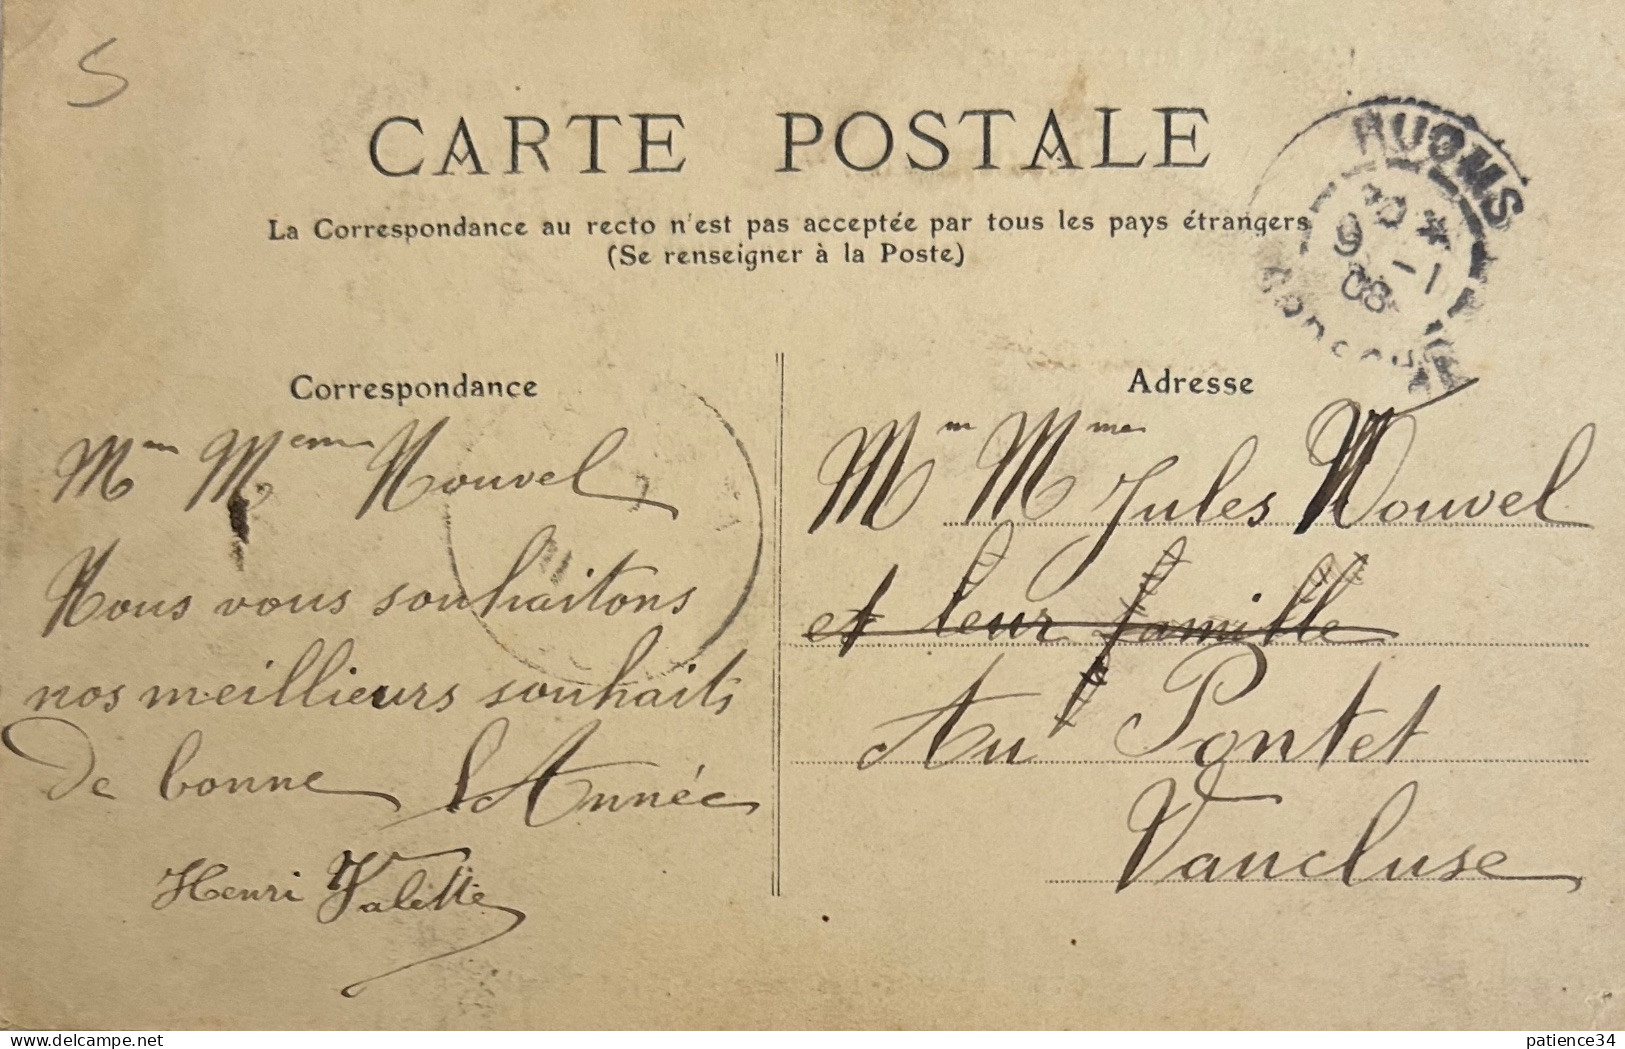 5
CARTE POSTALE
La Correspondance au recto n'est pas acceptée par tous les pays étrangers
(Se renseigner à la Poste)
RUOMS
9 -1
08
Correspondance
Mm Mem Nouvel
Nous vous souhaitons
nos meillieurs souhaits
De bonne l'Année
Henri Valette
Adresse
Mm Mme Jules Nouvel
et leur famille
Au Pontet
Vaucluse
delcampe.net
patience34